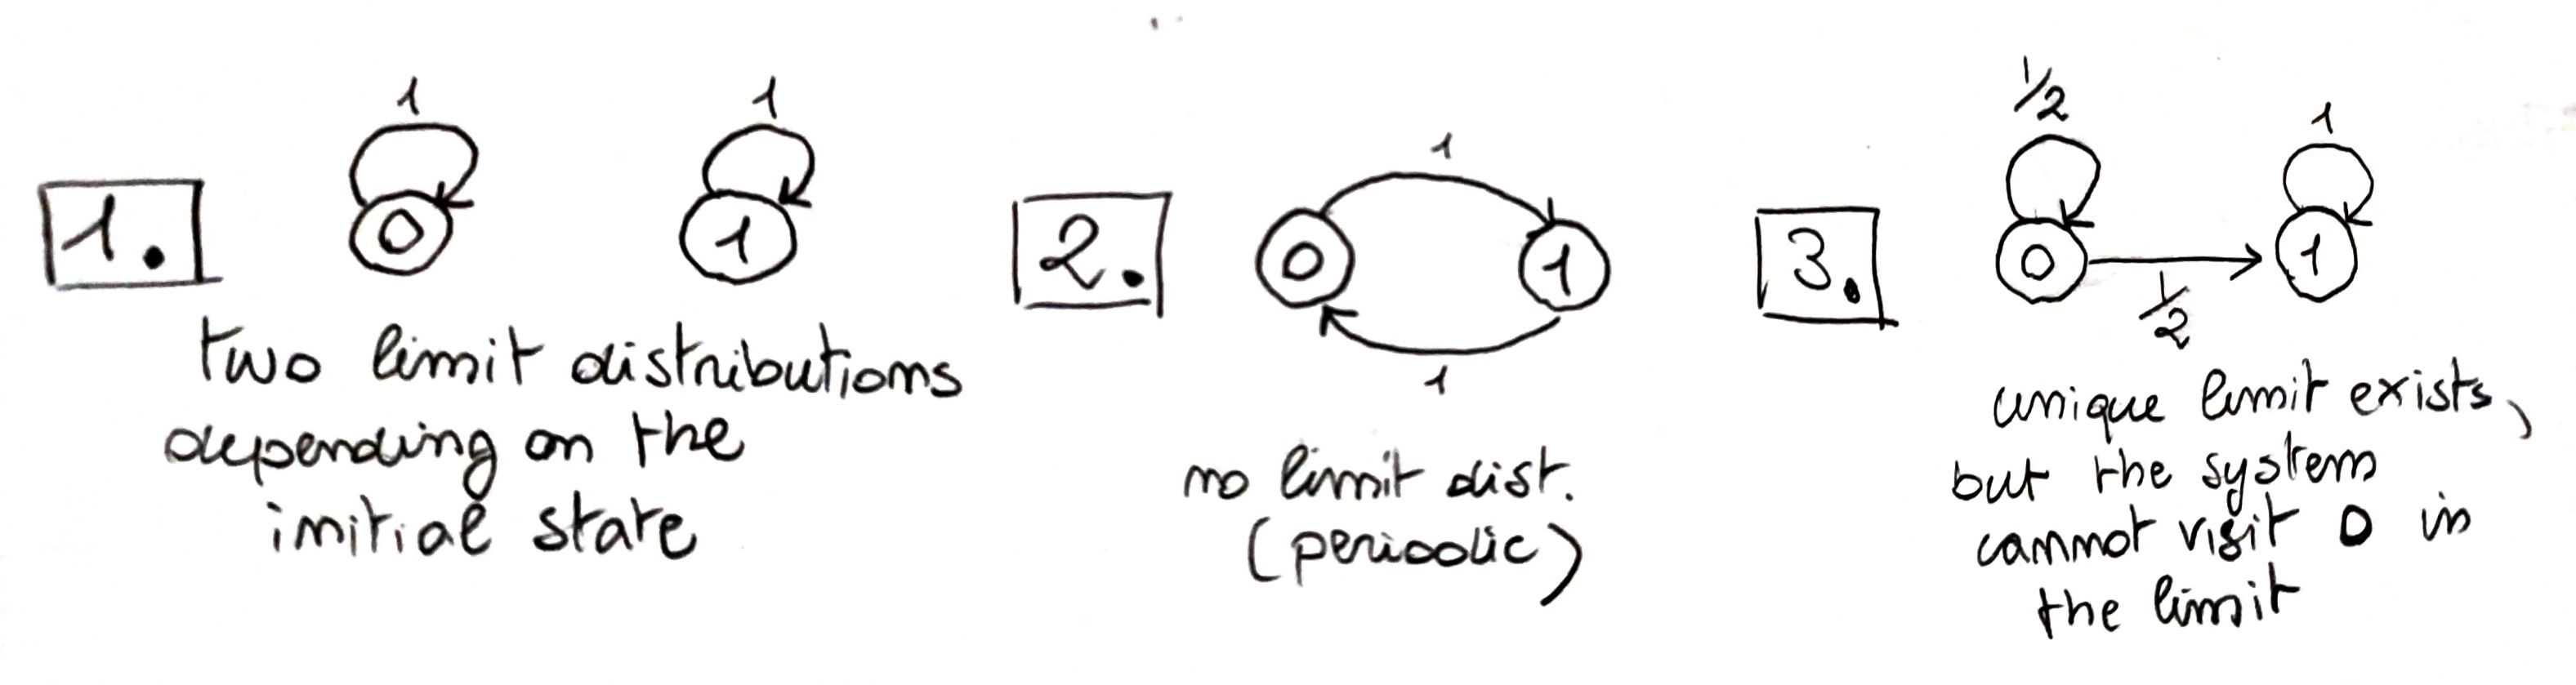 1.
1
1
0
1
two limit distributions
depending on the
initial state
2.
1
0
1
1
no limit dist.
(periodic)
3.
1/2
1
0
1
1/2
unique limit exists,
but the system
cannot visit 0 in
the limit